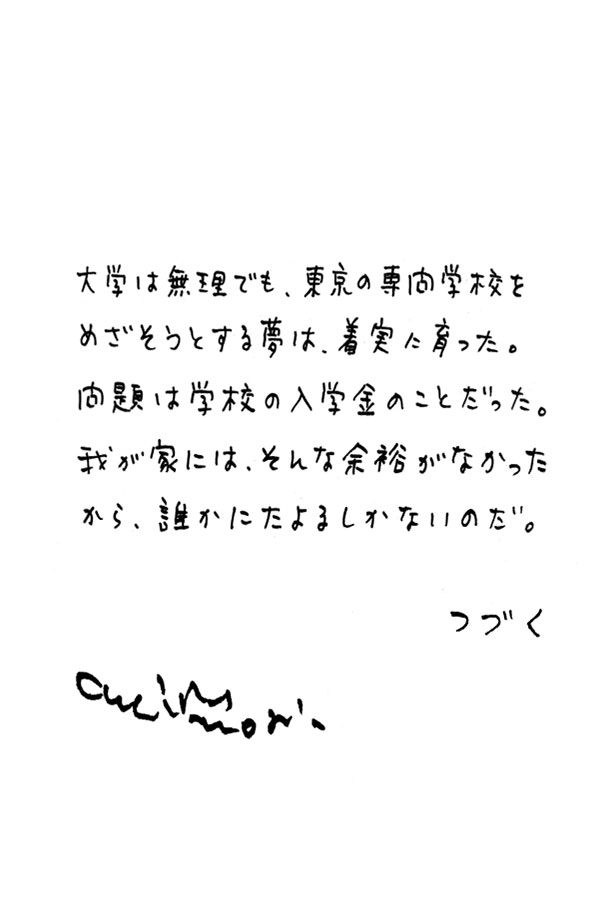 大学は無理でも、東京の専門学校を
めざそうとする夢は、着実に育った。
問題は学校の入学金のことだった。
我が家には、そんな余裕がなかった
から、誰かにたよるしかないのだ。
つづく